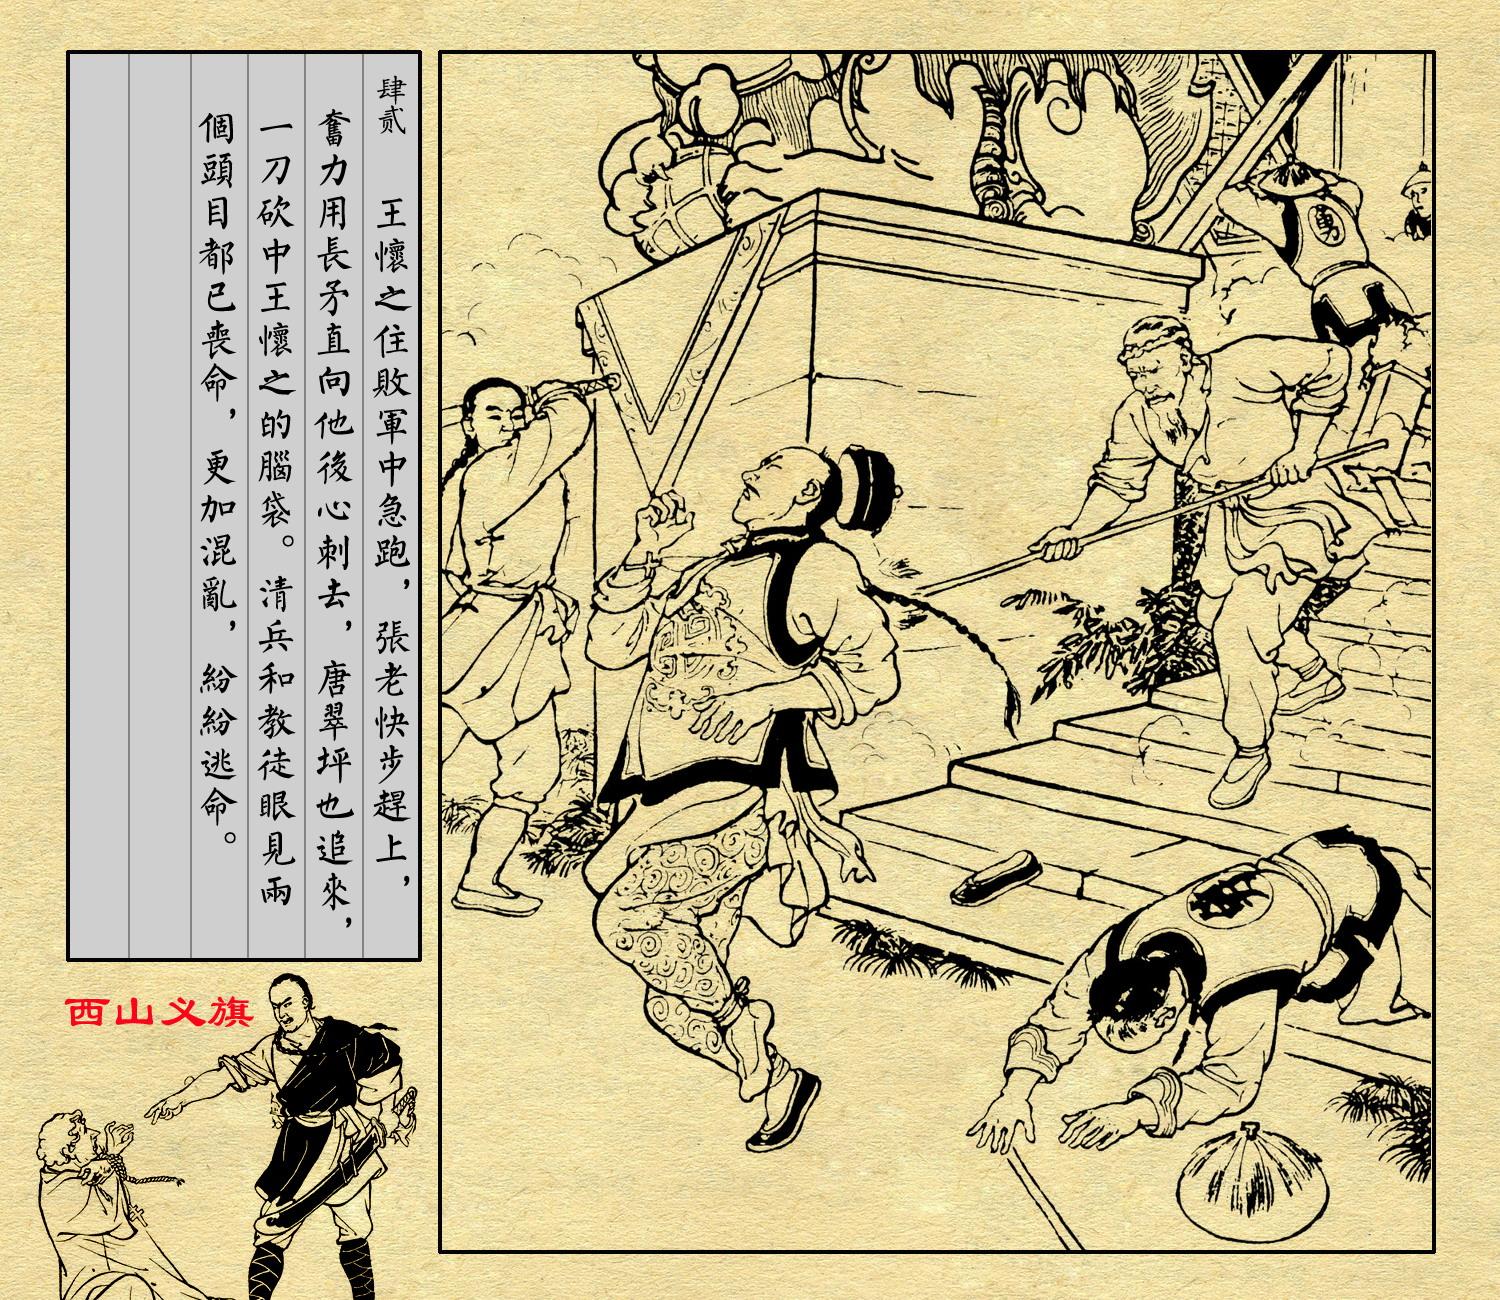 肆贰　王懷之住敗軍中急跑，張老快步趕上，
奮力用長矛直向他後心刺去，唐翠坪也追來，
一刀砍中王懷之的腦袋。清兵和教徒眼見兩
個頭目都已喪命，更加混亂，紛紛逃命。
西山义旗
勇